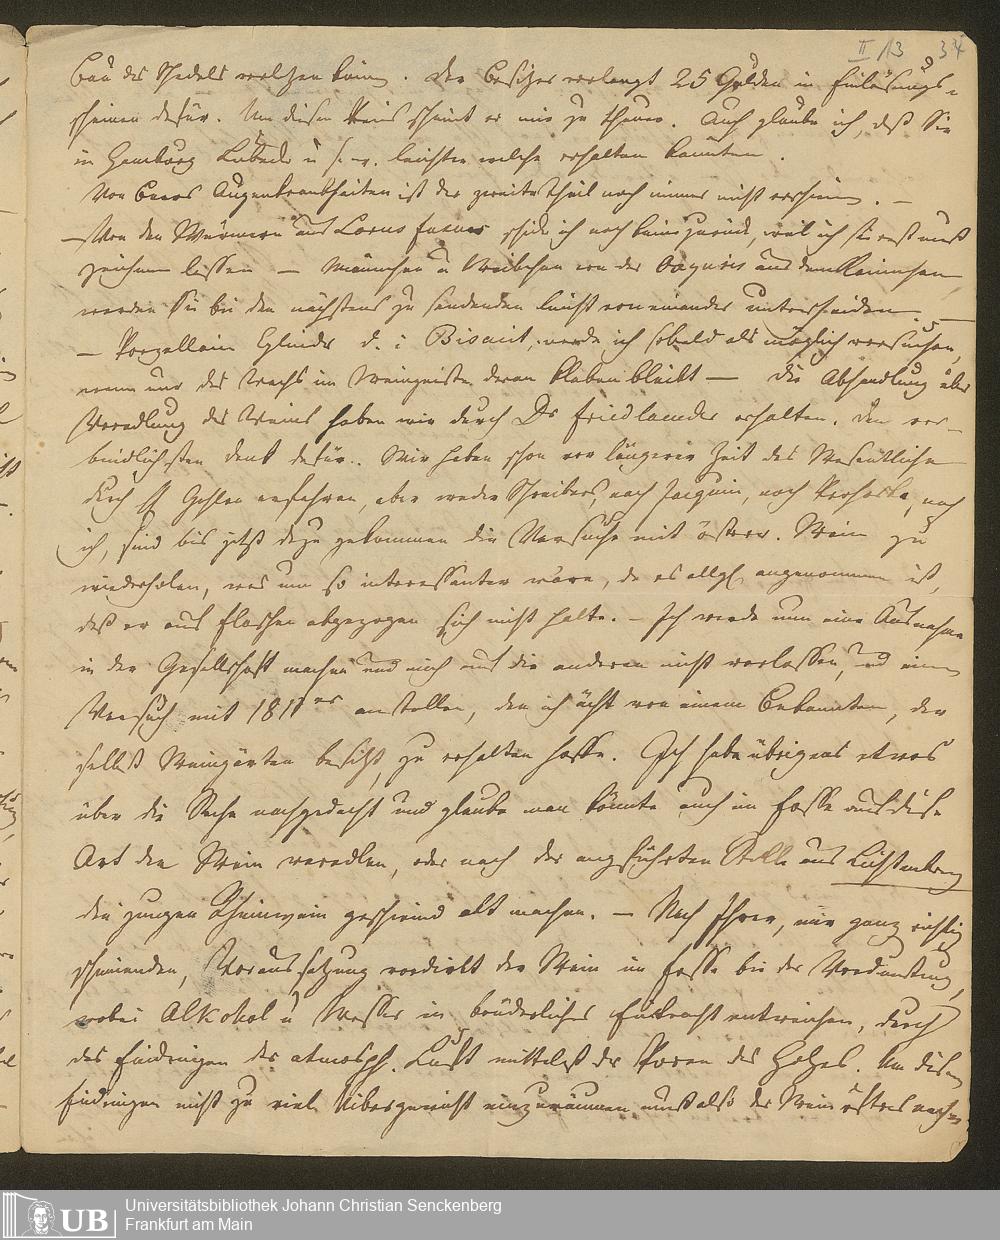 II /13 34
Bau des Schedels welchen kaum. Der Besitzer verlangt 25 Gulden in Einlösungs-
scheinen dafür. Um diesen Preis scheint er mir zu theuer. Auch glaube ich, daß Sie
in Hamburg Lübeck u s. w. leichter welche erhalten könnten.
Von Beers Augenkrankheiten ist der zweite Theil noch immer nicht erschienen. —
— Von den Würmern aus Larus fuscus schicke ich noch keine zurück, weil ich sie erst muß
zeichnen lassen — Männchen u Weibchen von der Oxyuris aus dem Kaninchen
werden Sie bei den nächstens zu sendenden leicht voneinander unterscheiden. —
— Porzellain Cylinder d. i Biscuit, werde ich sobald als möglich versuchen,
wenn nur das Wachs im Weingeiste daran kleben bleibt — Die Abhandlung über
Veredlung des Weins haben wir durch Dr Friedlaender erhalten. Den ver-
bindlichsten Dank dafür. Wir haben schon vor längerer Zeit das Wesentliche
durch H Gehlen erfahren, aber weder Schreibers, noch Jacquin, noch Prohaska, noch
ich, sind bis jetzt dazu gekommen die Versuche mit österr. Wein zu
wiederholen, was um so interessanter wäre, da es allg. angenommen ist,
daß er auf Flaschen abgezogen sich nicht halte. — Ich werde nun eine Ausnahme
in der Gesellschaft machen und mich auf die anderen nicht verlassen, und einen
Versuch mit 1811er anstellen, den ich ächt von einem Bekannten, der
selbst Weingärten besitzt zu erhalten hoffe. Ich habe übrigens etwas
über die Sache nachgedacht und glaube man könnte auch im Fasse auf diese
Art den Wein veredlen, oder nach der angeführten Stelle aus Lichtenberg
den jungen Rheinwein geschwind alt machen. — Nach Ihrer, mir ganz richtig
scheinenden, Voraussetzung verdirbt der Wein im Fasse bei der Verdunstung,
wobei Alkohol u Wasser in brüderlicher Eintracht entweichen, durch
das Eindringen der atmosph. Luft mittelst der Poren des Holzes. Um diesem
Eindringen nicht zu viel Übergewicht einzuräumen muß also der Wein öfters nach-
Universitätsbibliothek Johann Christian Senckenberg
Frankfurt am Main
UB